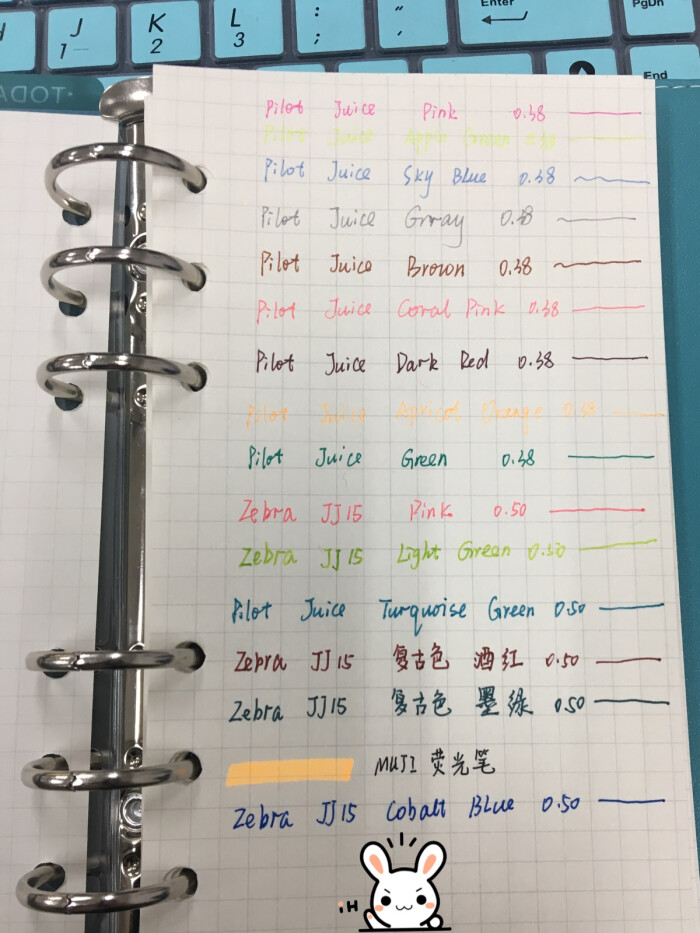 J
1
K
2
L
3
:
;
"
,
Enter
PgDn
End
TODA
Pilot Juice Pink 0.38
Pilot Juice Apple Green 0.38
Pilot Juice Sky Blue 0.38
Pilot Juice Grray 0.38
Pilot Juice Brown 0.38
Pilot Juice Coral Pink 0.38
Pilot Juice Dark Red 0.38
Pilot Juice Apricot Orange 0.38
Pilot Juice Green 0.38
Zebra JJ15 Pink 0.50
Zebra JJ15 Light Green 0.50
Pilot Juice Turquoise Green 0.50
Zebra JJ15 复古色 酒红 0.50
Zebra JJ15 复古色 墨绿 0.50
MUJI 荧光笔
Zebra JJ15 Cobalt Blue 0.50
iH